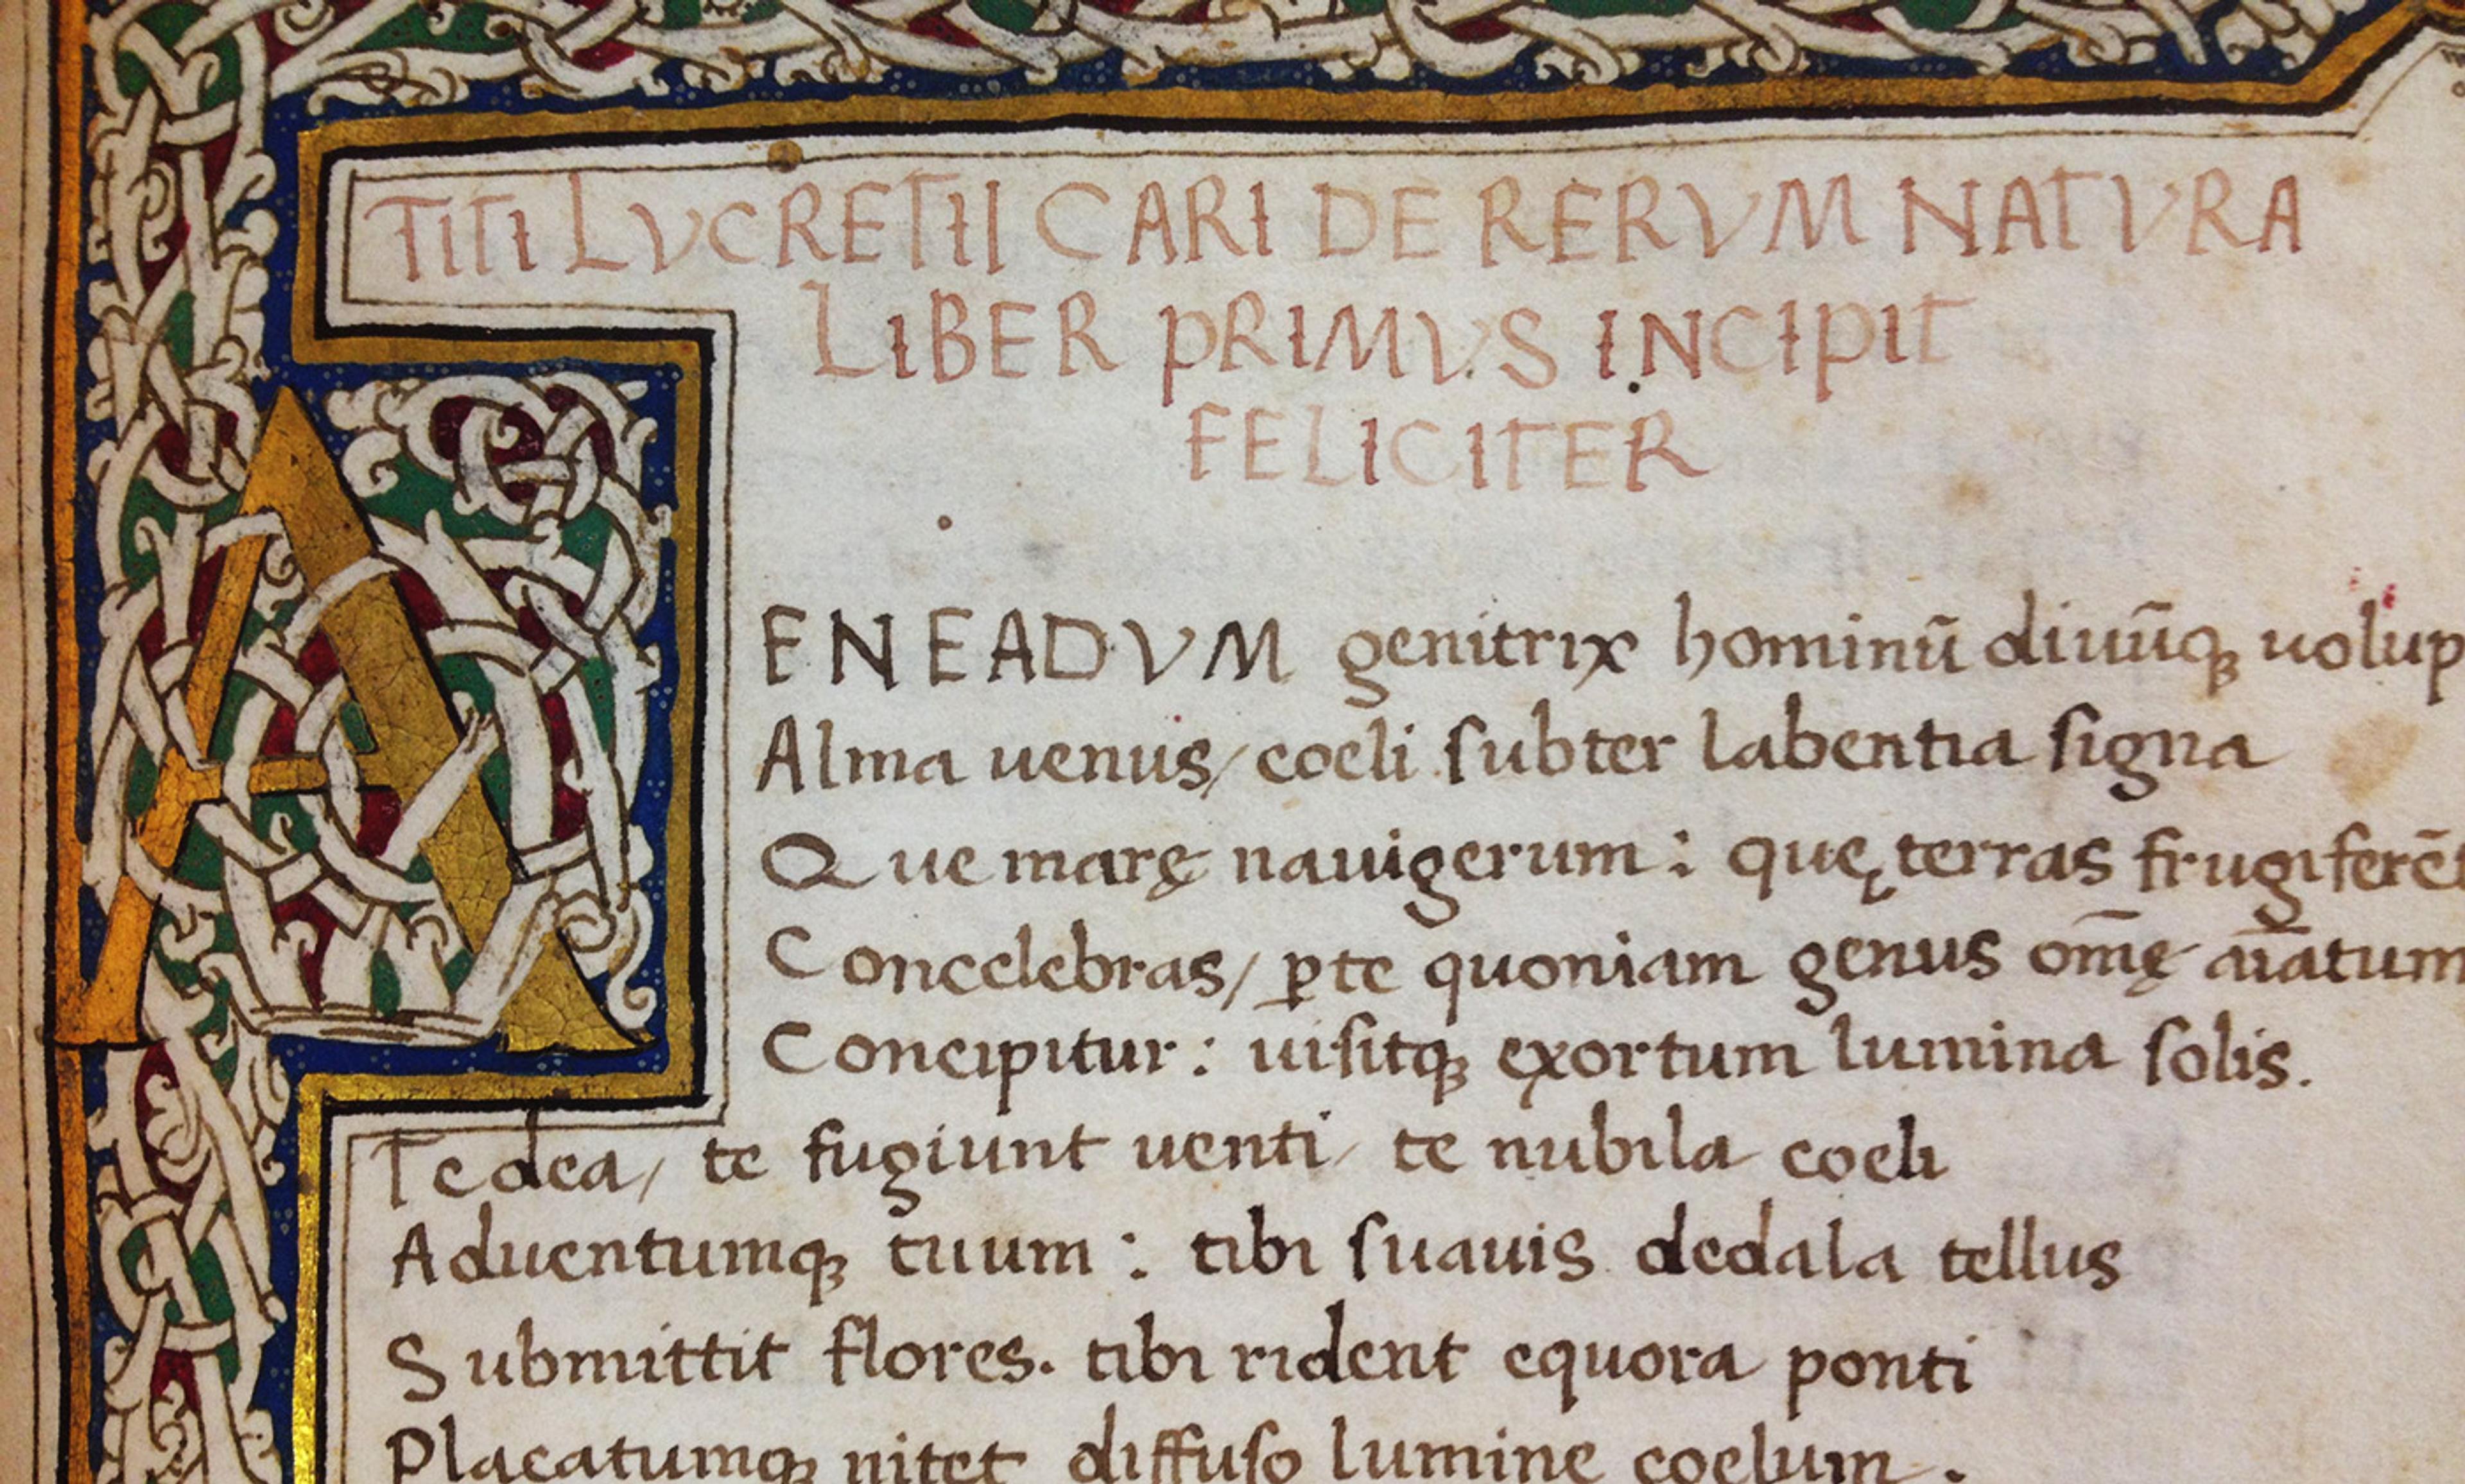 TITI LVCRETII CARI DE RERVM NATVRA
LIBER PRIMVS INCIPIT
FELICITER
AENEADVM genitrix hominū diuūqꝫ uolup
Alma uenus/ coeli ſubter labentia ſigna
Que marę nauigerum: quę terras frugiferēt
Concelebras/ ꝑ te quoniam genus om̄ę aīatum
Concipitur: uiſitqꝫ exortum lumina ſolis.
Te dea/ te fugiunt uenti/ te nubila coeli
Aduentumqꝫ tuum: tibi ſuauis dedala tellus
Submittit flores. tibi rident equora ponti
Placatumqꝫ nitet diffuſo lumine coelum.